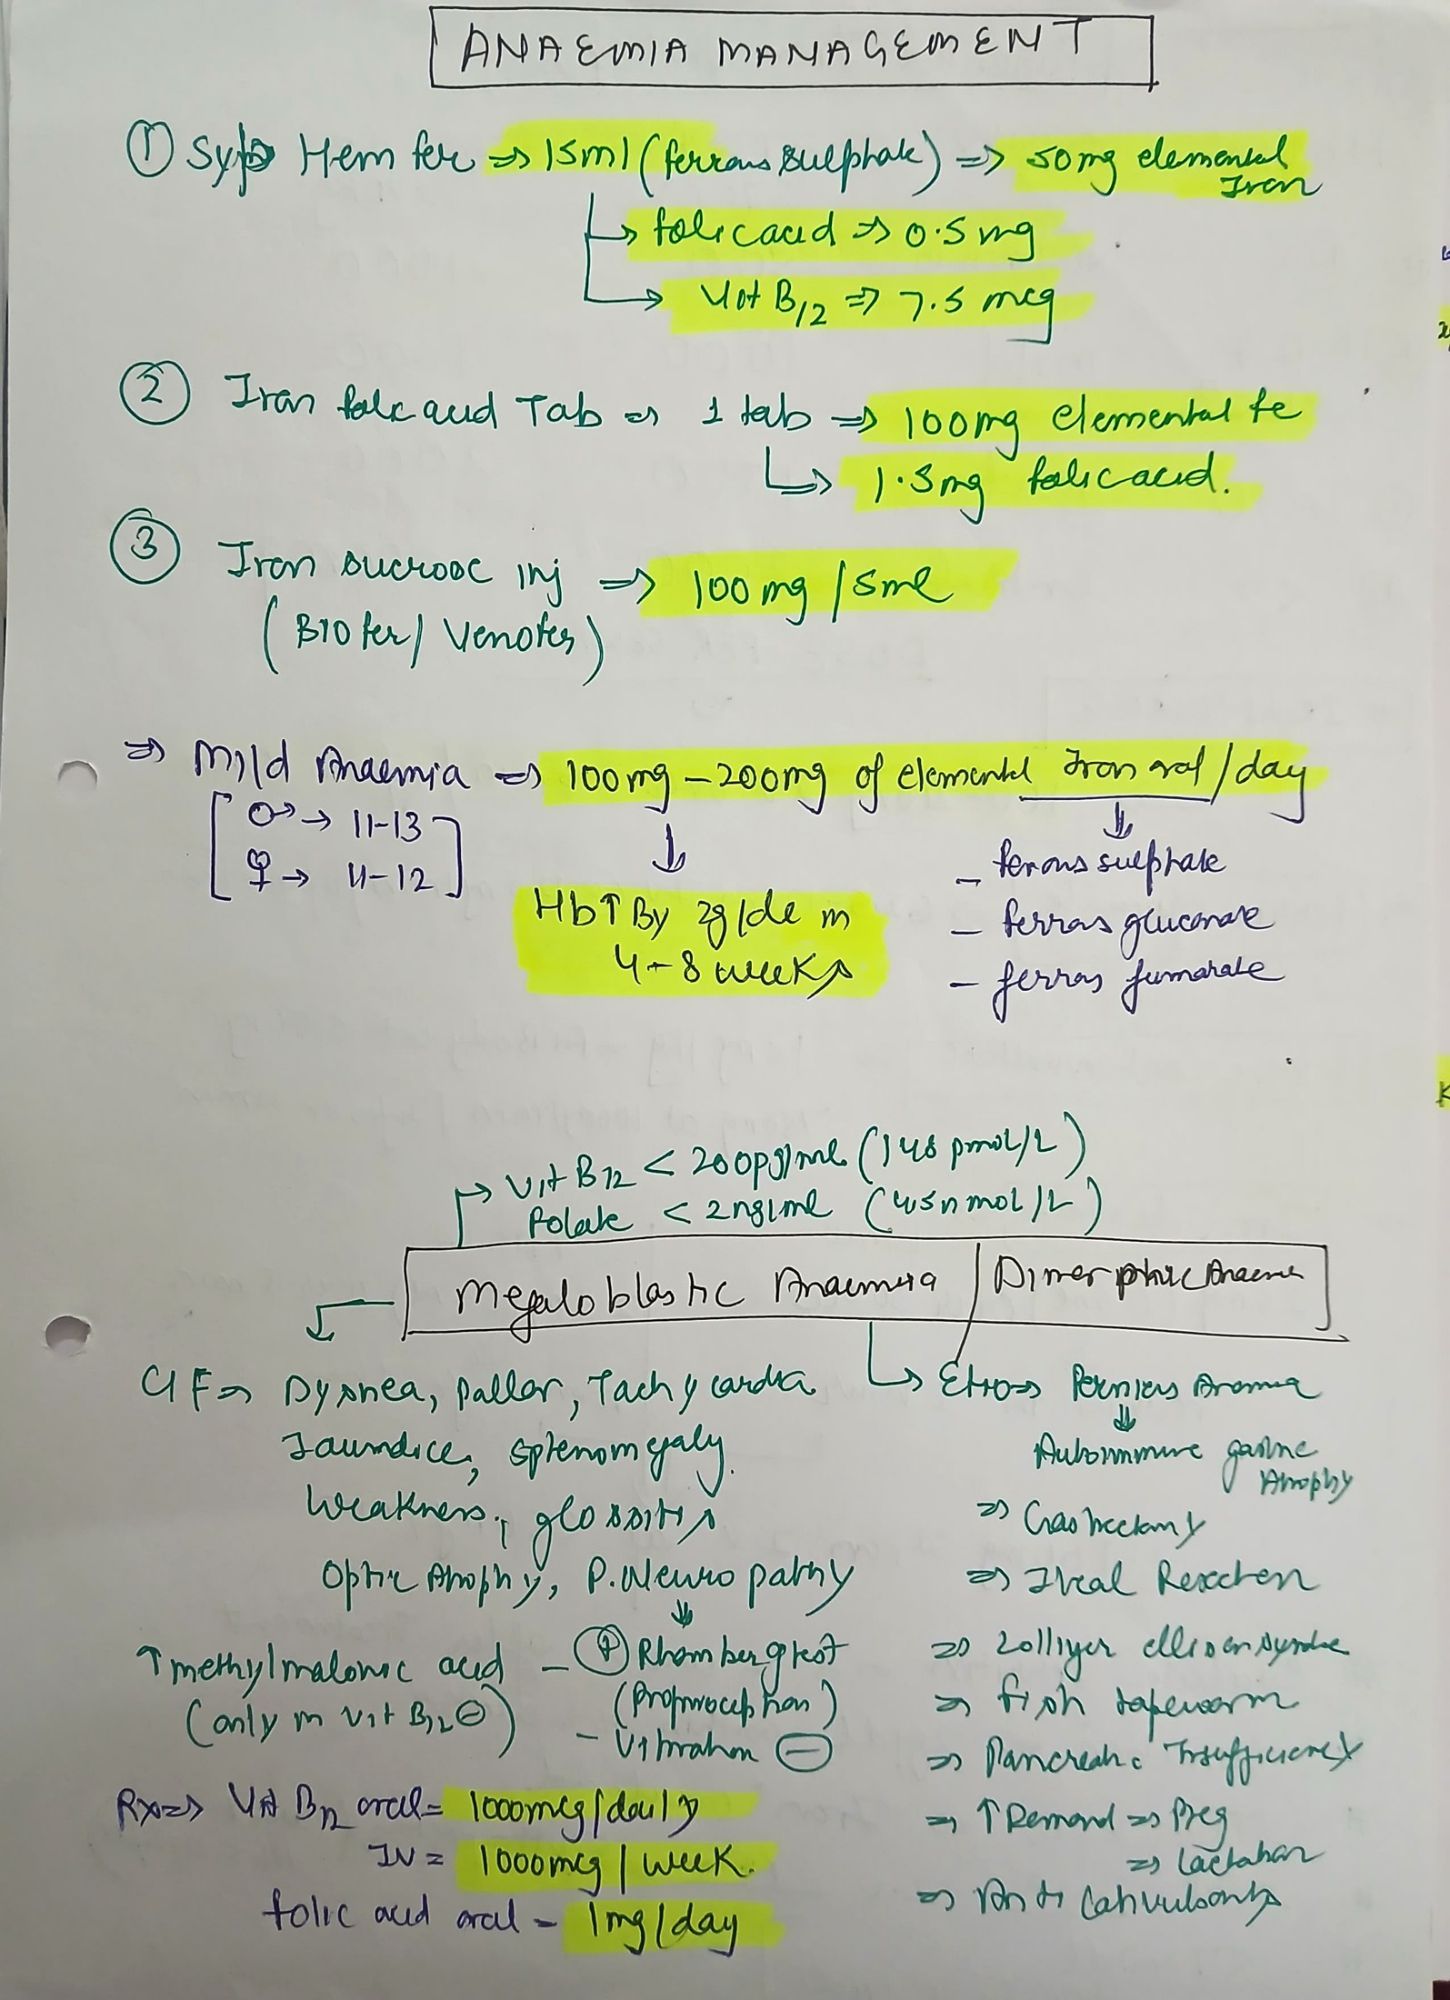 ANAEMIA MANAGEMENT
① Syp Hem fer ⇒ 15ml (ferrous sulphate) ⇒ 50mg elemental
Iron
↳ folic acid ⇒ 0.5 mg
↳ Vit B12 ⇒ 7.5 mcg
② Iron folic acid Tab ⇒ 1 tab ⇒ 100mg elemental fe
↳ 1.5mg folic acid.
③ Iron sucrose inj ⇒ 100 mg / 5ml
(BIO fer / Venofer)
⇒ Mild Anaemia ⇒ 100mg – 200mg of elemental Iron oral / day
[♂ → 11-13
♀ → 11-12]
↓
Hb↑ By 2g/dl in
4-8 weeks
⇓
– ferrous sulphate
– ferrous gluconate
– ferrous fumarate
→ Vit B12 < 200pg/ml (148 pmol/L)
Folate < 2ng/ml (45nmol/L)
Megaloblastic Anaemia / Dimorphic Anaemia
C/F ⇒ Dyspnea, pallor, Tachycardia
Jaundice, splenomegaly.
Weakness, glossitis
Optic Atrophy, P.Neuropathy
⇓
↑ methylmalonic acid
(only in vit B12 ⊖)
– ⊕ Rhomberg test
(Proprioception)
– Vibration ⊖
Rx ⇒ Vit B12 oral = 1000mcg/daily
IV = 1000mcg / week.
folic acid oral – 1mg/day
↳ Etio ⇒ Pernicious Anaemia
⇓
Autoimmune gastric
Atrophy
⇒ Gastrectomy
⇒ Ileal Resection
⇒ Zolliger ellison syndrome
⇒ fish tapeworm
⇒ Pancreatic Insufficiency
⇒ ↑ Demand ⇒ Preg
⇒ Lactation
⇒ Anti Convulsants